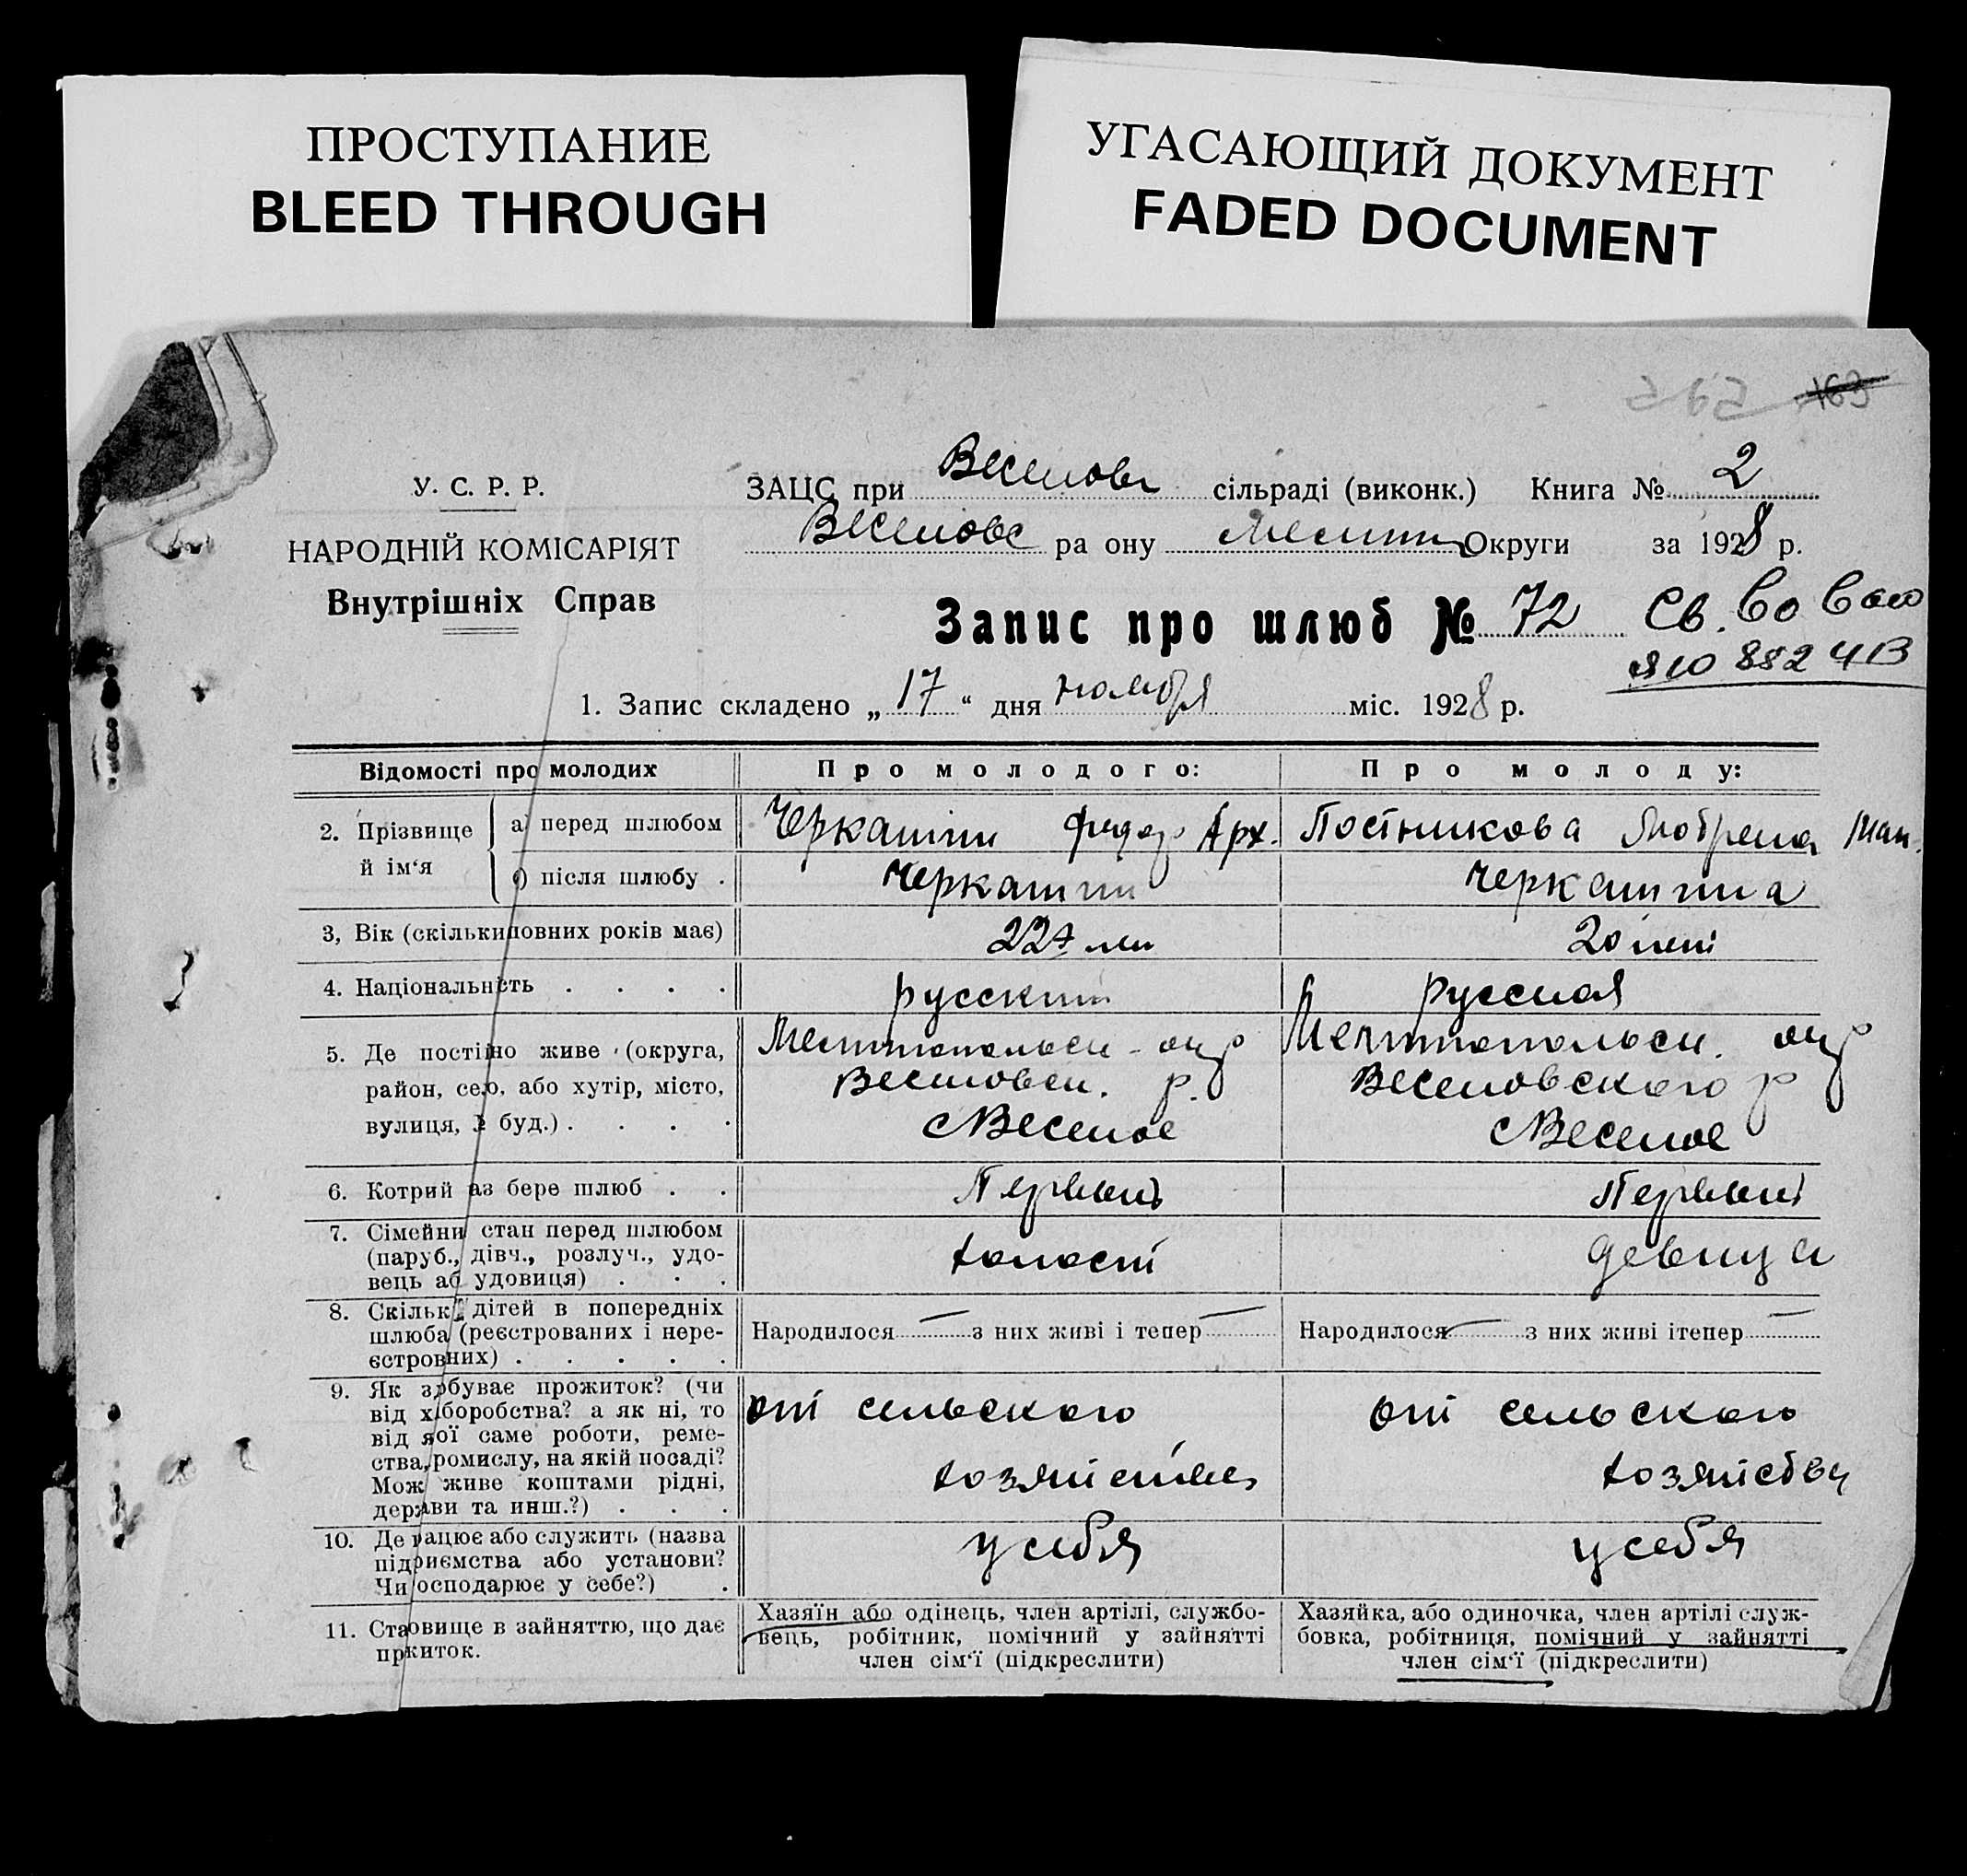 ПРОСТУПАНИЕ
BLEED THROUGH
УГАСАЮЩИЙ ДОКУМЕНТ
FADED DOCUMENT
163
У. С. Р. Р.
НАРОДНІЙ КОМІСАРІЯТ
Внутрішніх Справ
ЗАЦС при Веселовс сільраді (виконк.) Книга № 2
Веселовс ра ону Мелит Округи за 1928 р.
Запис про шлюб № 72
Св. во
ЯЮ 882413
1. Запис складено „ 17 “ дня ноября міс. 1928 р.
Відомості про молодих
Про молодого:
Про молоду:
2. Прізвище й ім‘я
а) перед шлюбом
Черкашин Федор Арх.
Постникова
б) після шлюбу .
Черкашин
Черкашина
3, Вік (скільки повних років має)
22
20 лет
4. Національність . . . .
русский
Русская
5. Де постійно живе (округа,
район, село, або хутір, місто,
вулиця, № буд.) . . . .
Мелитопольск. окр
Веселовск. р.
с Веселое
Мелитопольск. окр
Веселовского р
с Веселое
6. Котрий аз бере шлюб . .
Первый
Первый
7. Сімейни стан перед шлюбом
(паруб., дівч., розлуч., удо-
вець аб удовиця) . . .
холост
девица
8. Скільк дітей в попередніх
шлюба (реєстрованих і нере-
єстровних) . . . . .
Народилося — з них живі і тепер —
Народилося — з них живі ітепер —
9. Як здбуває прожиток? (чи
від хіборобства? а як ні, то
від яої саме роботи, реме-
ства, ромислу, на якій посаді?
Мож живе коштами рідні,
держави та инш.?) . . .
от сельского
хозяйства
от сельского
хозяйства
10. Де рацює або служить (назва
підриємства або установи?
Чи осподарює у себе?) .
у себя
у себя
11. Стаовище в зайняттю, що дає
пркиток.
Хазяїн або одінець, член артілі, службо-
вець, робітник, помічний у зайнятті
член сім‘ї (підкреслити)
Хазяйка, або одиночка, член артілі служ-
бовка, робітниця, помічний у зайнятті
член сім‘ї (підкреслити)